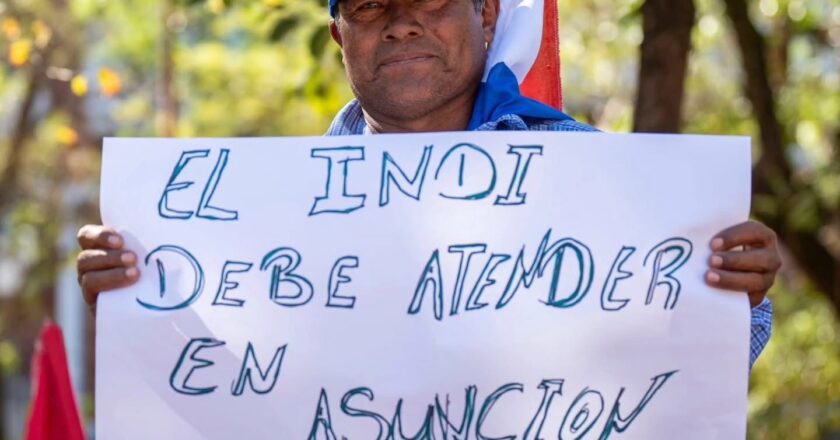 EL INDI
DEBE ATENDER
EN
ASUNCIÓN